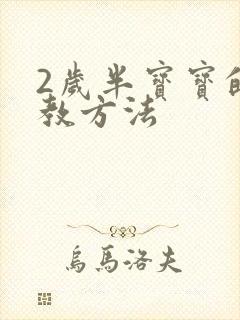 2歲半寶寶的
教方法
烏馬洛夫